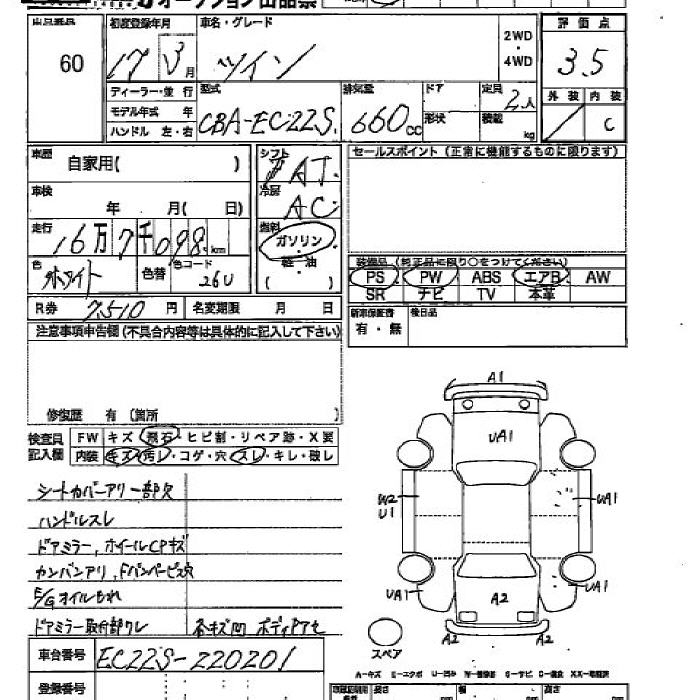 オークション出品票
出品番号 初度登録年月 車名・グレード 2WD ・ 4WD 評価点
60 17 3月 ツイン 3.5
ディーラー・並 行 型式 排気量 ドア 定員 外装 内装
モデル年式 年 CBA-EC22S. 660cc 形状 2人 積載 kg / C
ハンドル 左・右
車歴 自家用( ) シフト AT. セールスポイント(正常に機能するものに限ります)
車検 年 月( 日) 冷房 AC
走行 16万7千098km 燃料 ガソリン・軽・油 ( )
色 ホワイト 色替 色コード 26U
装備品(純正品に限り○をつけてください)
PS PW ABS エアB AW
SR ナビ TV 本革
R券 7,510 円 名変期限 月 日
新車保証書 有・無 後日品
注意事項申告欄(不具合内容等は具体的に記入して下さい)
修復歴 有 (箇所 )
検査員記入欄 FW キズ・飛石・ヒビ割・リペア跡・X要
内装 キズ・汚レ・コゲ・穴・スレ・キレ・破レ
シートカバーアリ 一部欠
ハンドルスレ
ドアミラー,ホイールCPキズ
カンバンアリ,Fバンパービス穴
E/Gオイルもれ
ドアミラー取付部ワレ 各キズ凹 ボディドアセ
A1
UA1
W2
U1
UA1
UA1
A2
UA1
A2 A2
スペア
車台番号 EC22S-220201
A-キズ E-エクボ U-凹み W-補修跡 S-サビ C-腐食 XX-交換済
登録番号 長さ 幅 高さ